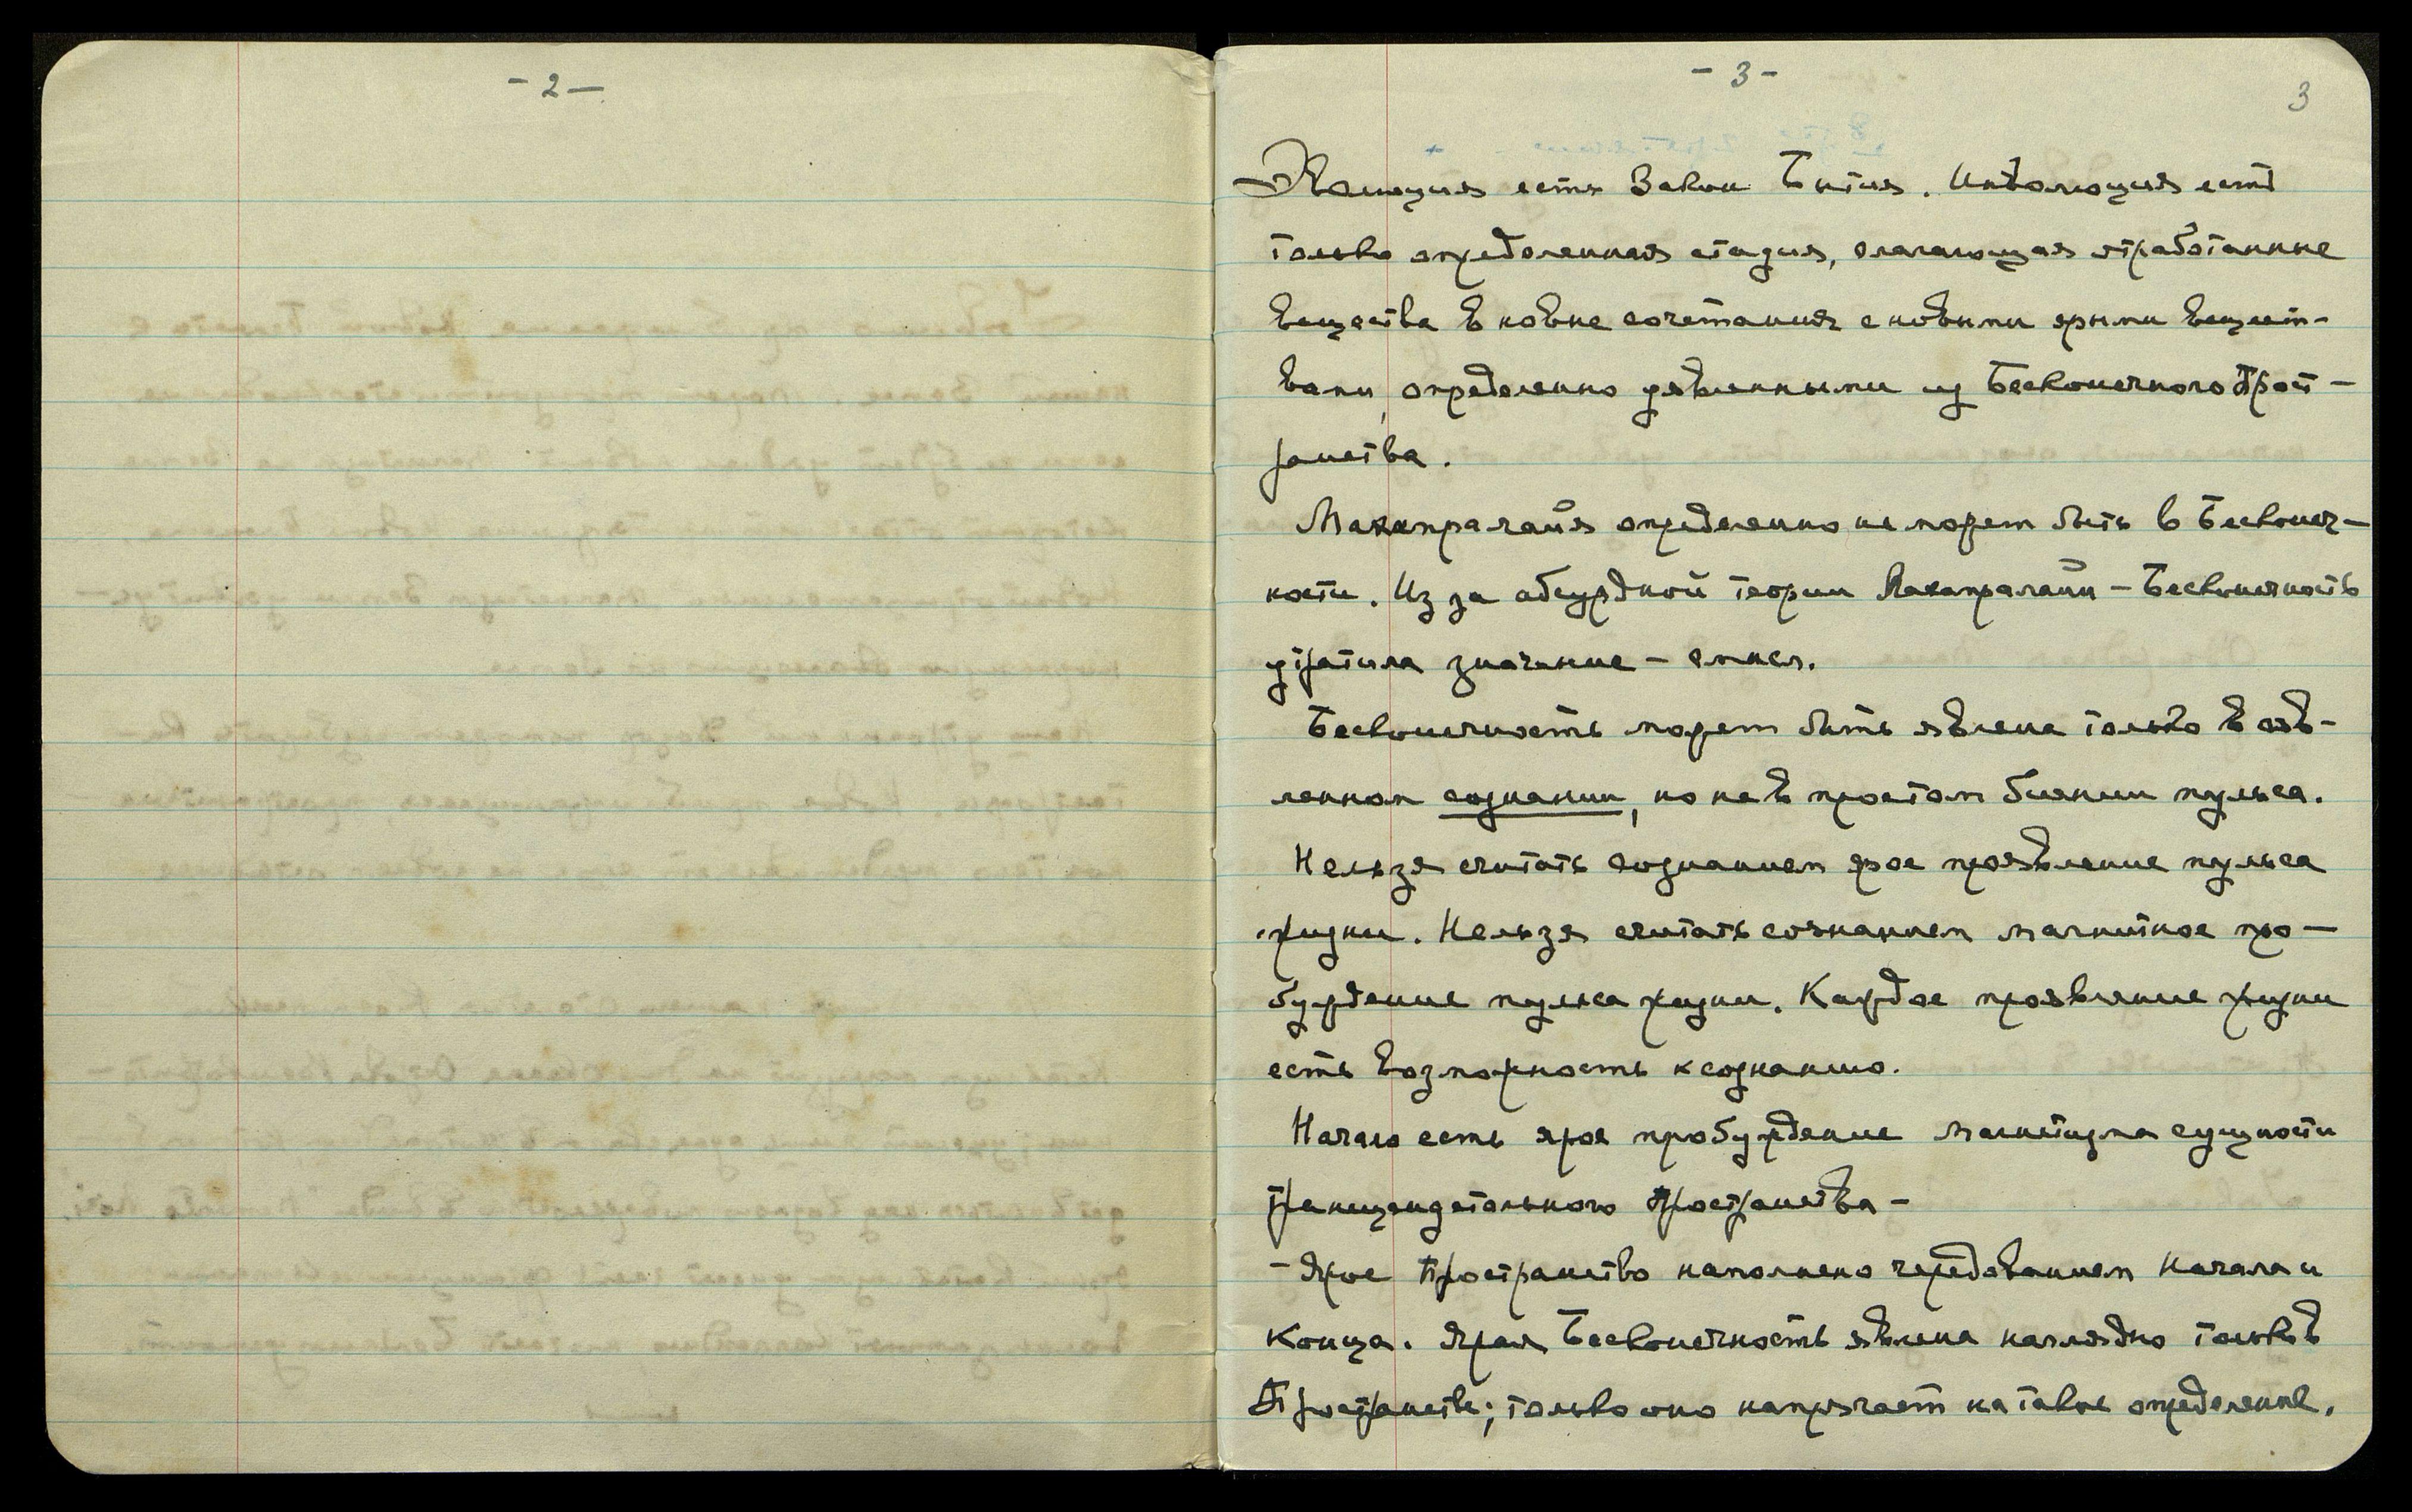 - 2 -
- 3 -
3
Эволюция есть Закон Бытия. Инволюция есть
только определенная стадия, слагающая отработанные
вещества в новые сочетания с новыми ярыми вещест-
вами, определенно уявленными из Бесконечного Прост-
ранства.
Махапралайя определенно не может быть в Бесконеч-
ности. Из за абсурдной теории Махапралайи - Бесконечность
утратила значение - смысл.
Бесконечность может быть явлена только в ояв-
ленном сознании, но не в простом биении пульса.
Нельзя считать сознанием ярое проявление пульса
жизни. Нельзя считать сознанием магнитное про-
буждение пульса жизни. Каждое проявление жизни
есть возможность к сознанию.
Начало есть ярое пробуждение магнетизма сущности
трансцендетального Пространства -
- Ярое Пространство наполнено чередованием Начала и
Конца. Ярая Бесконечность явлена наглядно только в
Пространстве; только оно напрягает на такое определение.